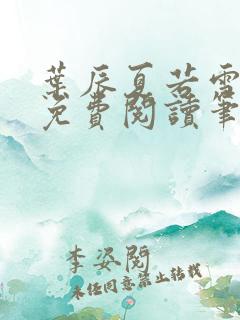 葉辰夏若雪
免費閱讀筆
李姿閱
未經同意禁止轉載